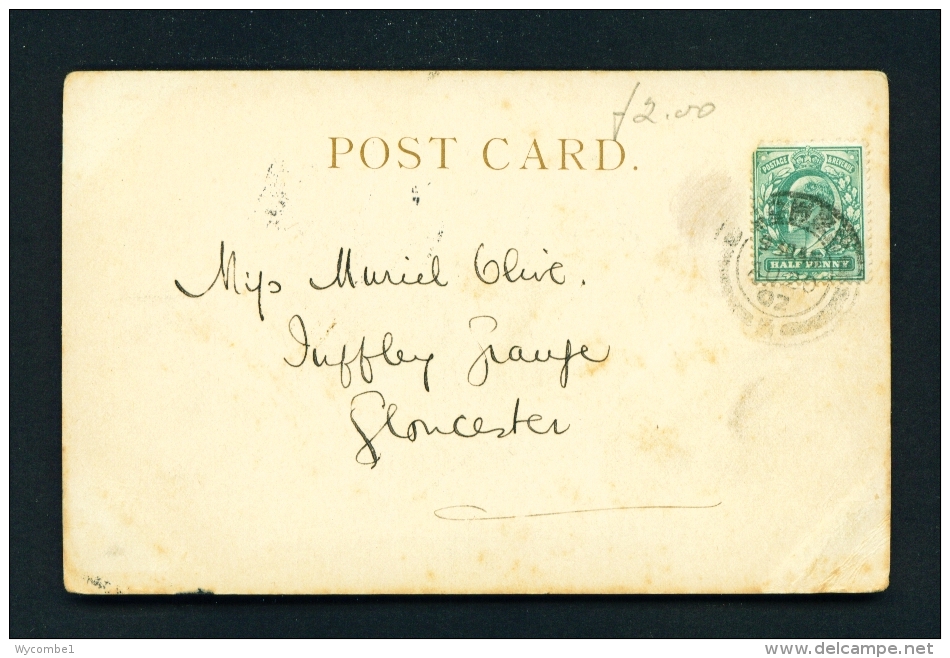 £2.00
POST CARD.
POSTAGE & REVENUE
HALF PENNY
02
Miss Muriel Clive.
Tuffley Grange
Gloucester
Wycombe1
delcampe.net